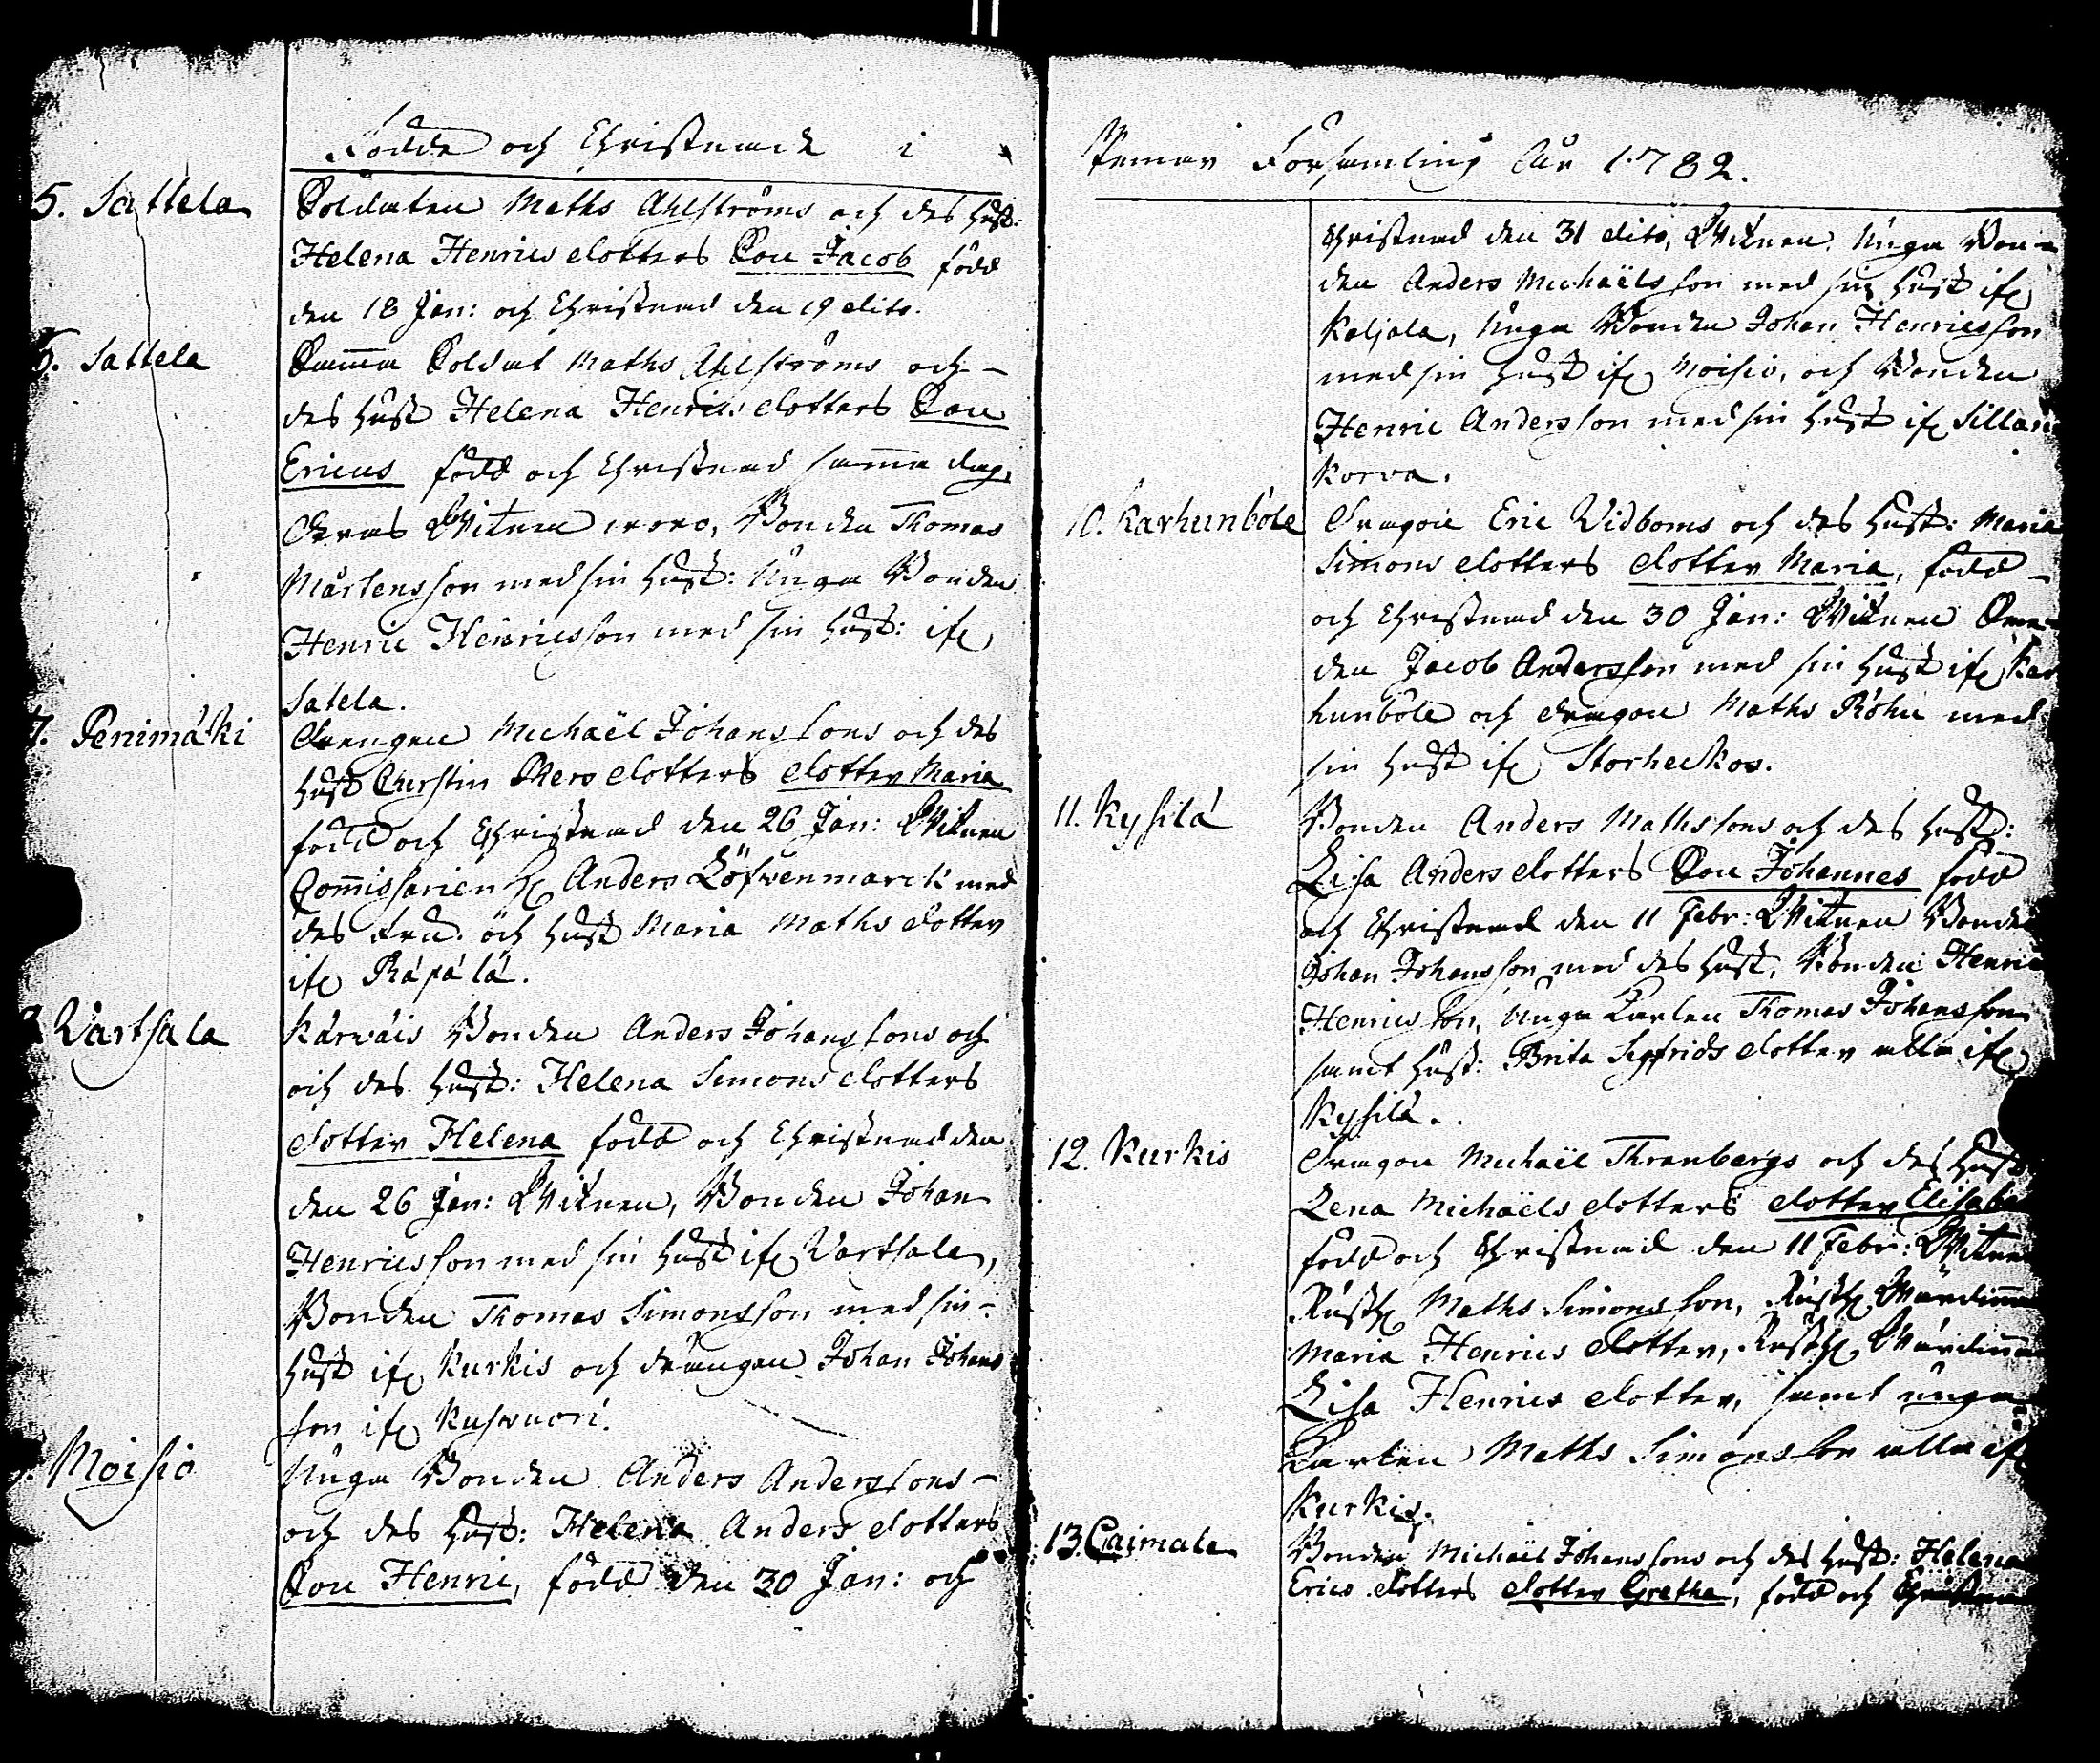 Födde och Christnade i
5. Sattela
Soldaten Maths Ahlströms och des Hust:
Helena Henrics dotters Son Jacob född
den 18 Jan: och Christnad den 19 dito.
6. Sattela
Samma Soldat Maths Ahlströms och
des Hust Helena Henrics dotters Son
Ericus född och Christnad samma dag,
Deras Witnen woro, Bonden Thomas
Mårtensson med sin Hust: Unga Bonden
Henric Henricsson med sin Hust: ifr
Satela.
7. Penimäki
Drengen Michaël Johanssons och des
Hust Churstin Pers dotters dotter Maria
född och Christnad den 26 Jan: Witnen
Commissarien Hr Anders Löfwenmarck med
des fru. och Hust Maria Maths dotter
ifr Räpälä.
Vartsala
Kärwäis Bonden Anders Johanssons och
och des Hust: Helena Simons dotters
dotter Helena född och Christnad den
den 26 Jan: Witnen, Bonden Johan
Henricsson med sin Hust ifr Vartsala,
Bonden Thomas Simonsson med sin
Hust ifr Kurkis och drängen Johan Johans
son ifr Kusvuori.
Moisio
Unga Bonden Anders Anderssons
och des Hust: Helena Anders dotters
Son Henric, född den 30 Jan: och
Pemar Församling Åår 1782.
Christnad den 31 dito, Witnen, Unga Bon-
den Anders Michaëlsson med sin Hust ifr
Kaljala, Unga Bonden Johan Henricsson
med sin Hust ifr Moisio, och Bonden
Henric Andersson med sin Hust ifr Sillan
Korva.
10. Karhunböle
Dragon Eric Vidboms och des Hust: Maria
Simons dotters dotter Maria, född
och Christnad den 30 Jan: Witnen
den Jacob Andersson med sin Hust ifr Kar
hunböle och dragon Maths Röhn med
sin Hust ifr Storheikos.
11. Kysilä
Bonden Anders Mathssons och des Hust:
Lisa Anders dotters Son Johannes född
och Christnad den 11 Febr: Witnen Bonden
Johan Johansson med des Hust, Bonden Henric
Henricsson, Unga Karlen Thomas Johansson
samt Hust: Brita Sigfrids dotter alla ifr
Kysilä.
12. Kurkis
Dragon Michaël Thranbergs och des Hust
Lena Michaëls dotters dotter Elisabe
född och Christnad den 11 Febr: Witnen
Rusth Maths Simonsson, Rusth Wärdinnan
Maria Henrics dotter, Rusth Wärdinnan
Lisa Henrics dotter, samt unga
Karlen Maths Simonsson alla ifr
Kurkis.
13. Caimala
Bonden Michaël Johanssons och des Hust: Helena
Erics dotters dotter Gretha, född och Christnad